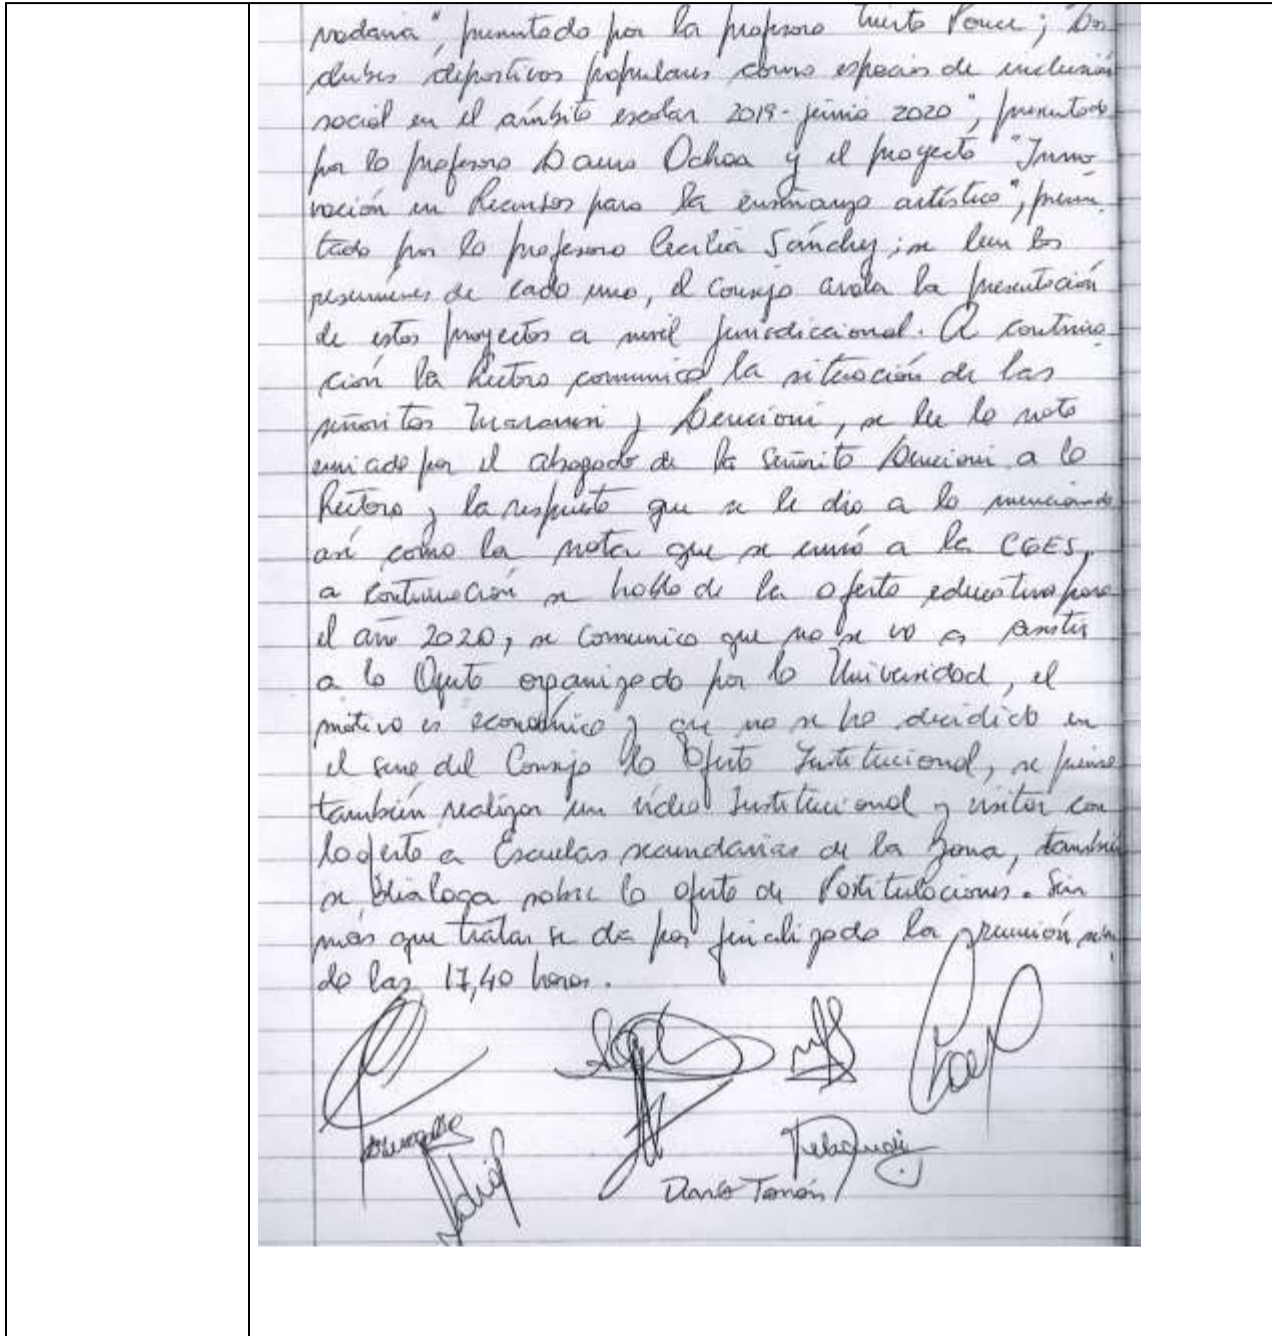 presentado por la profesora Ponce; "Los
clubes deportivos populares como espacios de inclusión
social en el ámbito escolar 2019-junio 2020", presentado
por la profesora Ochoa y el proyecto "Inno
vación en Recursos para la enseñanza artística", presen
tado por la profesora Cecilia Sánchez; se leen los
resúmenes de cada uno, el Consejo avala la presentación
de estos proyectos a nivel jurisdiccional. A continua
ción la Rectora comunica la situación de las
señoritas y se lee la nota
enviada por el abogado de la Señorita a la
Rectora y la respuesta que se le dio a la mencionada
así como la nota que se envió a la CGES,
a continuación se habla de la oferta educativa para
el año 2020, se comunica que no se va a asistir
a la organizado por la Universidad, el
motivo es económico y que no se ha decidido en
el seno del Consejo la Oferta Institucional, se piensa
también realizar un video Institucional y visitar con
la oferta a Escuelas secundarias de la Zona, también
se dialoga sobre la oferta de Postitulaciones. Sin
más que tratar se da por finalizada la reunión sien
do las 17,40 horas.